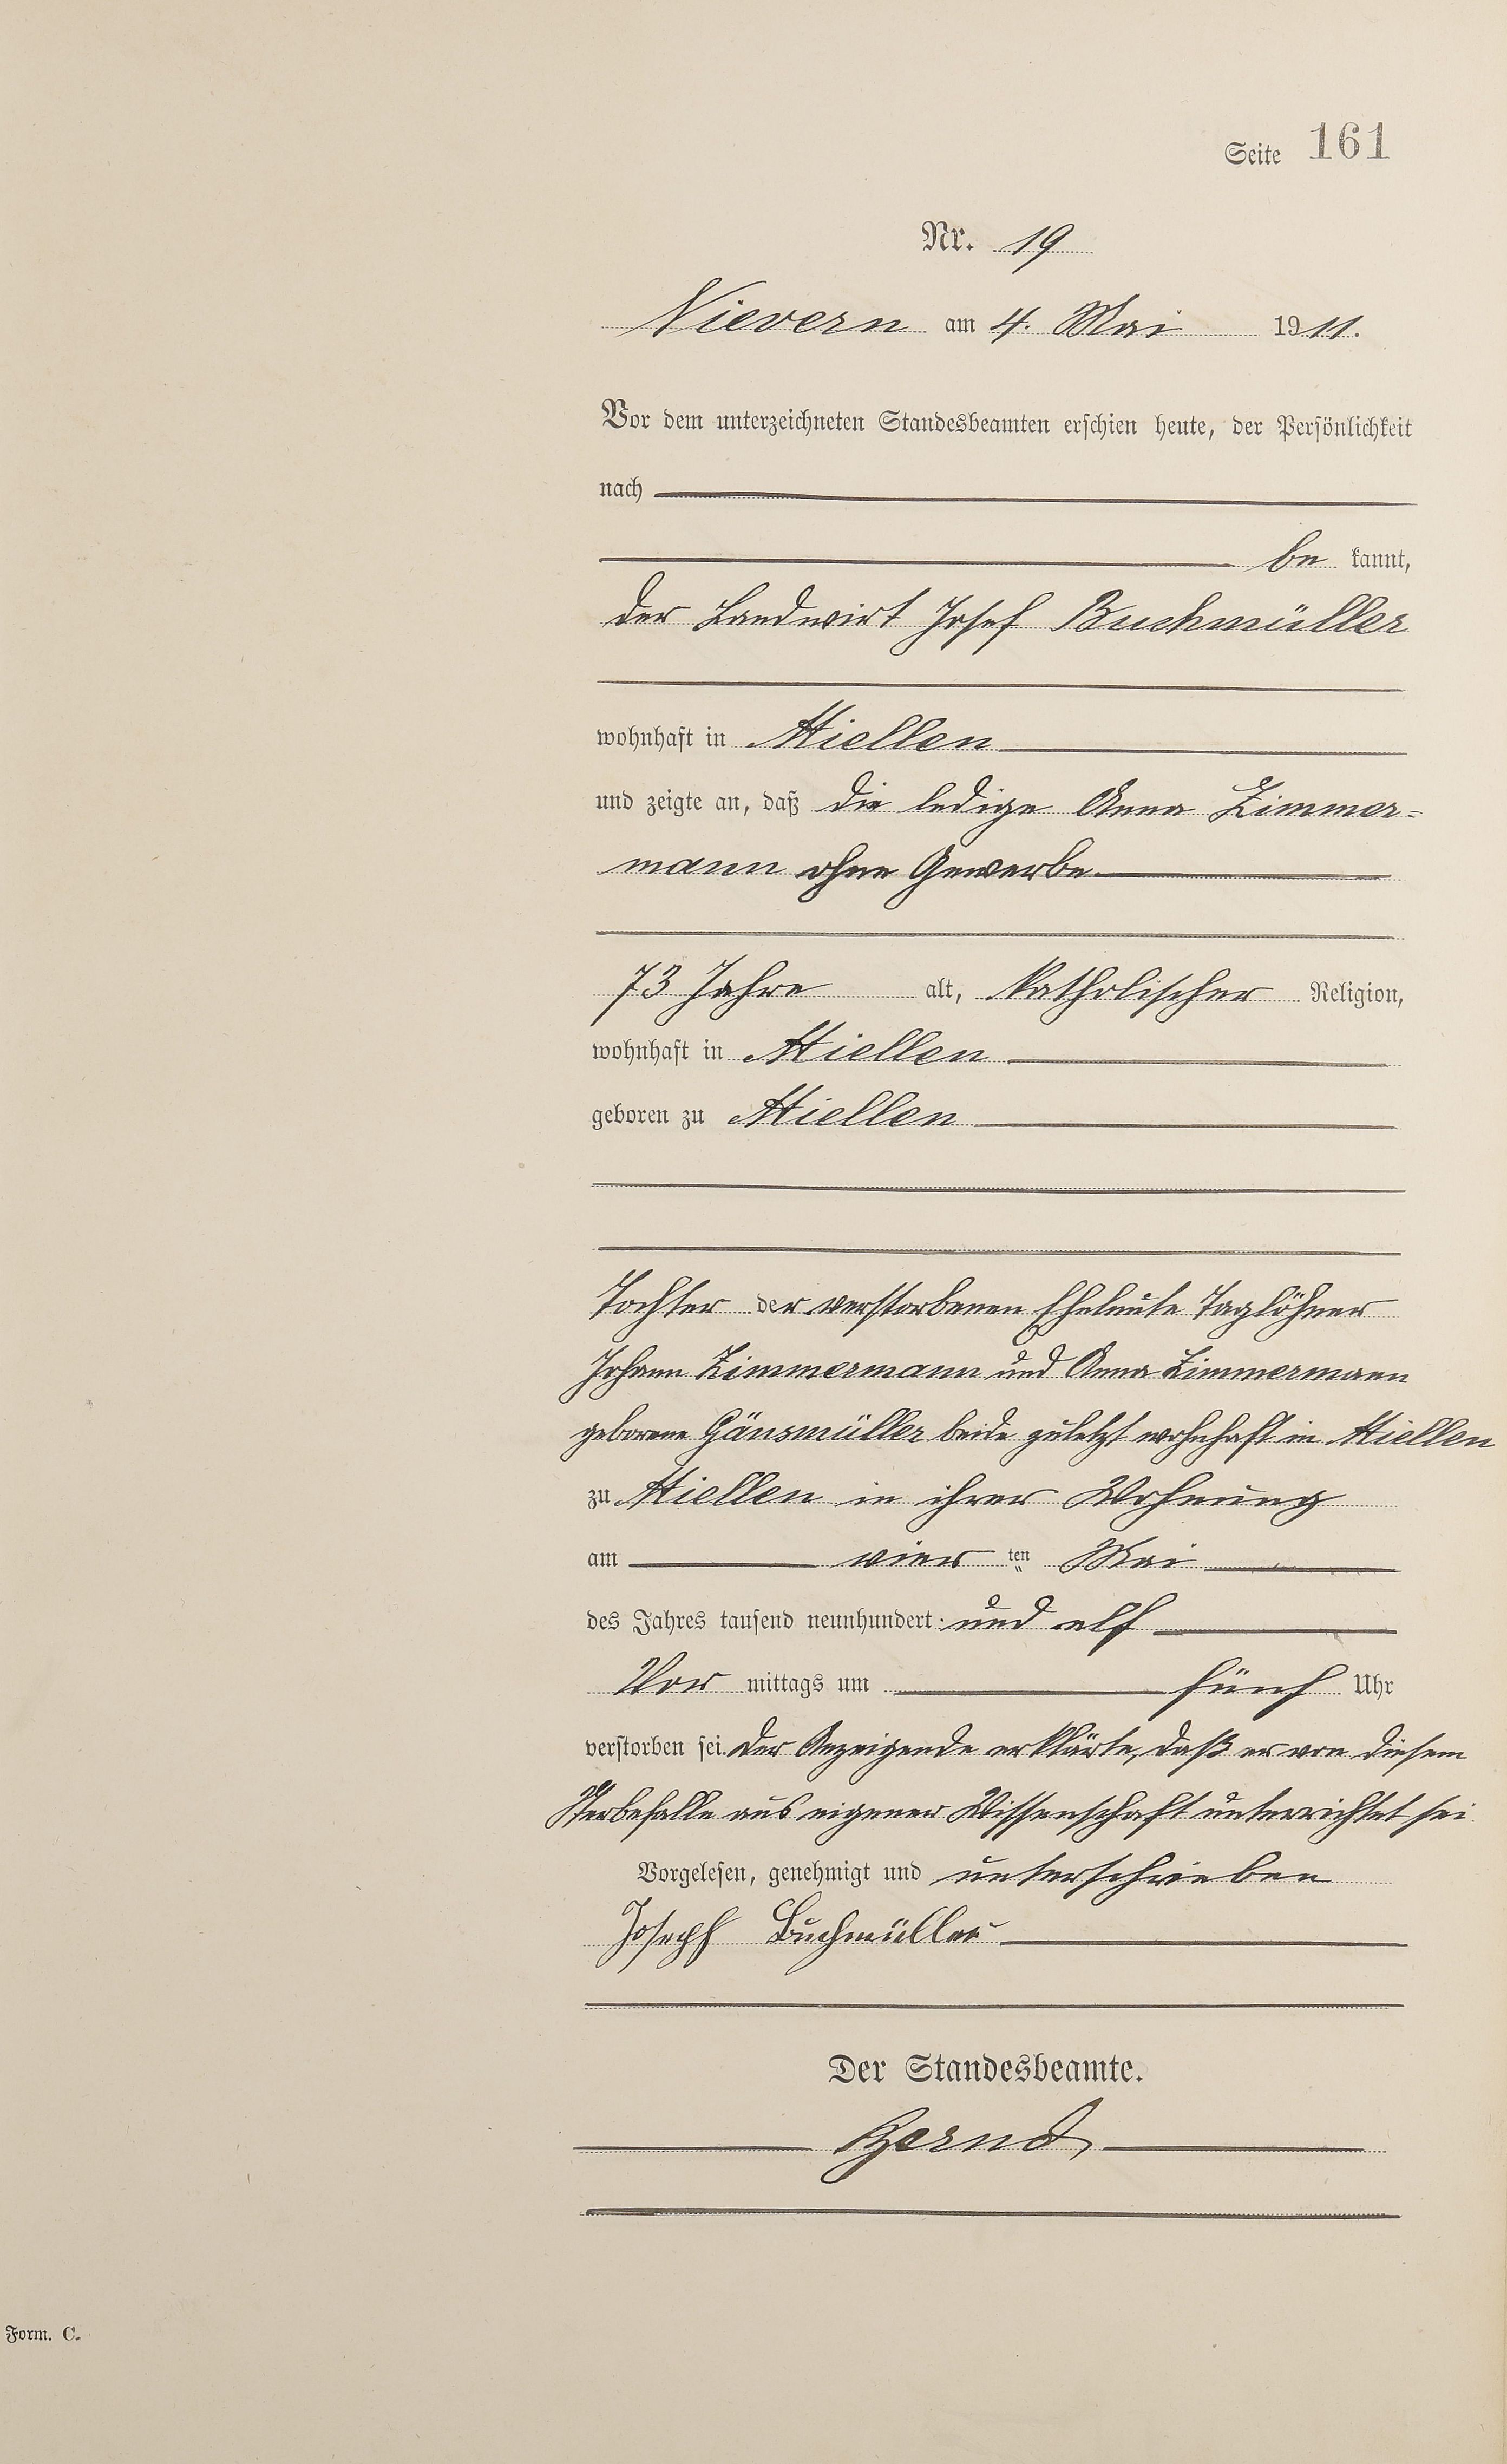 Seite 161
Nr. 19
Nievern am 4. Mai 1911.
Vor dem unterzeichneten Standesbeamten erschien heute, der Persönlichkeit
nach
be kannt,
der Landwirt Josef Buchmüller
wohnhaft in Miellen
und zeigte an, daß die ledige Anna Zimmer-
mann ohne Gewerbe
73 Jahre alt, katholischer Religion,
wohnhaft in Miellen
geboren zu Miellen
Tochter der verstorbenen Eheleute Taglöhner
Johann Zimmermann und Anna Zimmermann
geborene Gänsmüller beide zuletzt wohnhaft in Miellen
zu Miellen in ihrer Wohnung
am vier ten Mai
des Jahres tausend neunhundert und elf
Vor mittags um fünf Uhr
verstorben sei. Der Anzeigende erklärte, daß er von diesem
Sterbefalle aus eigener Wissenschaft unterrichtet sei.
Vorgelesen, genehmigt und unterschrieben
Joseph Buchmüller
Der Standesbeamte.
Form. C.